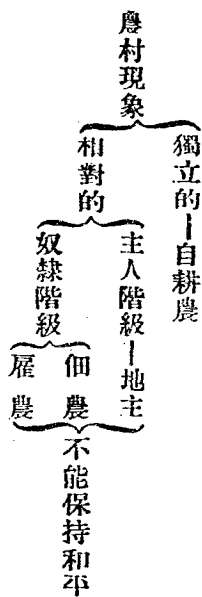 農村現象
獨立的—自耕農
相對的
主人階級—地主
奴隸階級
佃農
雇農
不能保持和平